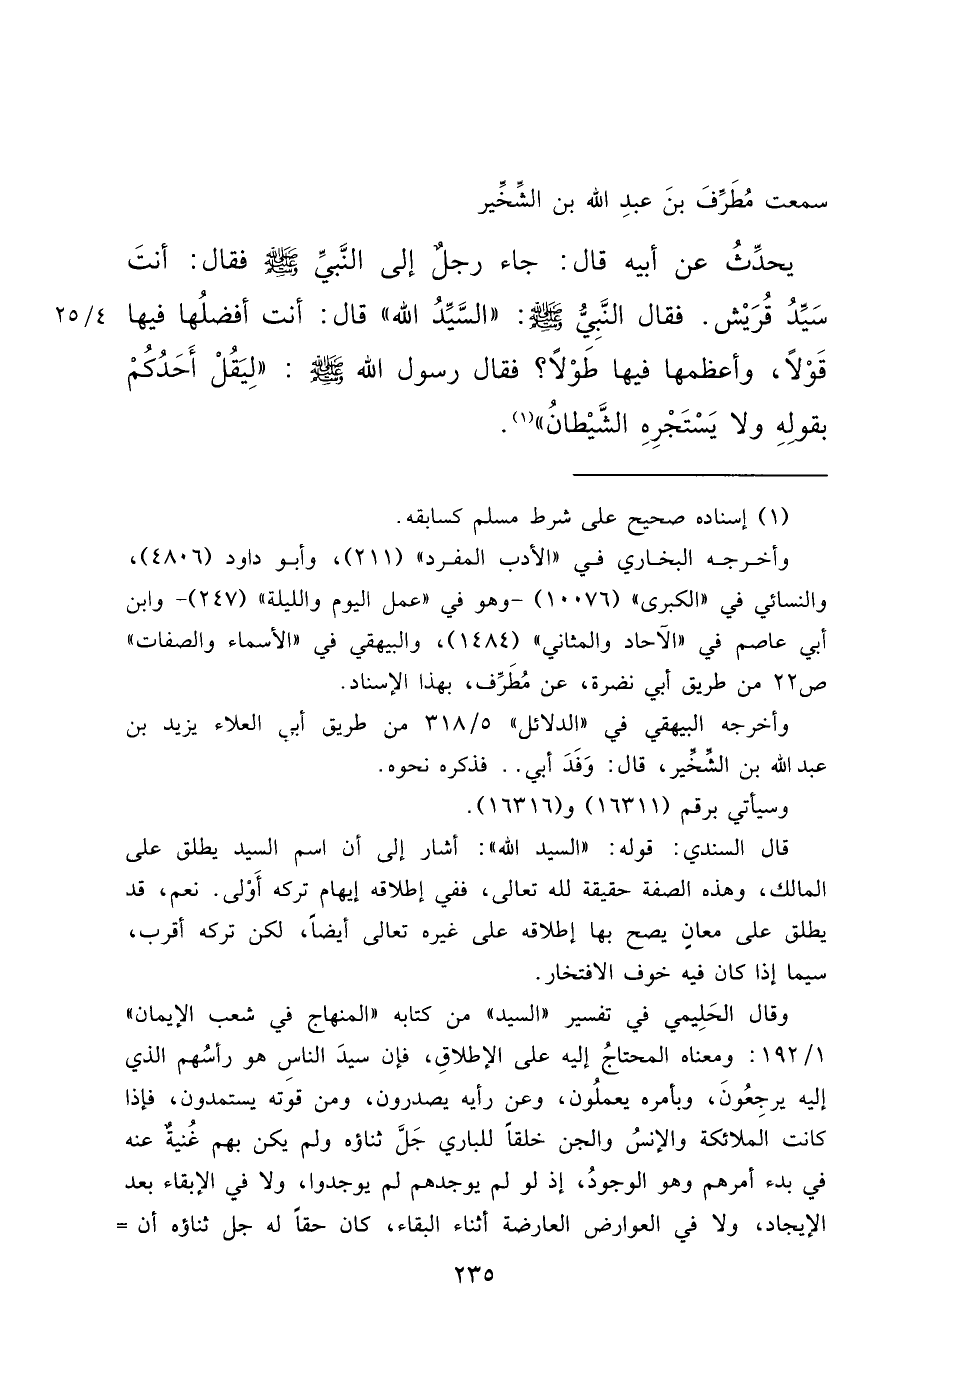 سمعت مُطَرِّفَ بنَ عبدِ الله بن الشِّخِّير
يحدِّثُ عن أبيه قال: جاء رجلٌ إلى النَّبيِّ ﷺ فقال: أنتَ
سَيِّدُ قُرَيْش. فقال النَّبِيُّ ﷺ: «السَّيِّدُ الله» قال: أنت أفضلُها فيها ٢٥/٤
قَوْلاً، وأعظمها فيها طَوْلاً؟ فقال رسول الله ﷺ : «لِيَقُلْ أَحَدُكُمْ
بقولِهِ ولا يَسْتَجْرِهِ الشَّيْطانُ»(١).
(١) إسناده صحيح على شرط مسلم كسابقه.
وأخرجه البخاري في «الأدب المفرد» (٢١١)، وأبو داود (٤٨٠٦)،
والنسائي في «الكبرى» (١٠٠٧٦) -وهو في «عمل اليوم والليلة» (٢٤٧)- وابن
أبي عاصم في «الآحاد والمثاني» (١٤٨٤)، والبيهقي في «الأسماء والصفات»
ص٢٢ من طريق أبي نضرة، عن مُطَرِّف، بهذا الإسناد.
وأخرجه البيهقي في «الدلائل» ٣١٨/٥ من طريق أبي العلاء يزيد بن
عبد الله بن الشِّخِّير، قال: وَفَدَ أبي.. فذكره نحوه.
وسيأتي برقم (١٦٣١١) و(١٦٣١٦).
قال السندي: قوله: «السيد الله»: أشار إلى أن اسم السيد يطلق على
المالك، وهذه الصفة حقيقة لله تعالى، ففي إطلاقه إيهام تركه أَوْلى. نعم، قد
يطلق على معانٍ يصح بها إطلاقه على غيره تعالى أيضاً، لكن تركه أقرب،
سيما إذا كان فيه خوف الافتخار.
وقال الحَلِيمي في تفسير «السيد» من كتابه «المنهاج في شعب الإيمان»
١٩٢/١: ومعناه المحتاجُ إليه على الإطلاقِ، فإن سيدَ الناسِ هو رأسُهم الذي
إليه يرجِعُونَ، وبأمره يعملُون، وعن رأيه يصدرون، ومن قوته يستمدون، فإذا
كانت الملائكة والإنسُ والجن خلقاً للباري جَلَّ ثناؤه ولم يكن بهم غُنيةٌ عنه
في بدء أمرهم وهو الوجودُ، إذ لو لم يوجدهم لم يوجدوا، ولا في الإبقاء بعد
الإيجاد، ولا في العوارض العارضة أثناء البقاء، كان حقاً له جل ثناؤه أن =
٢٣٥